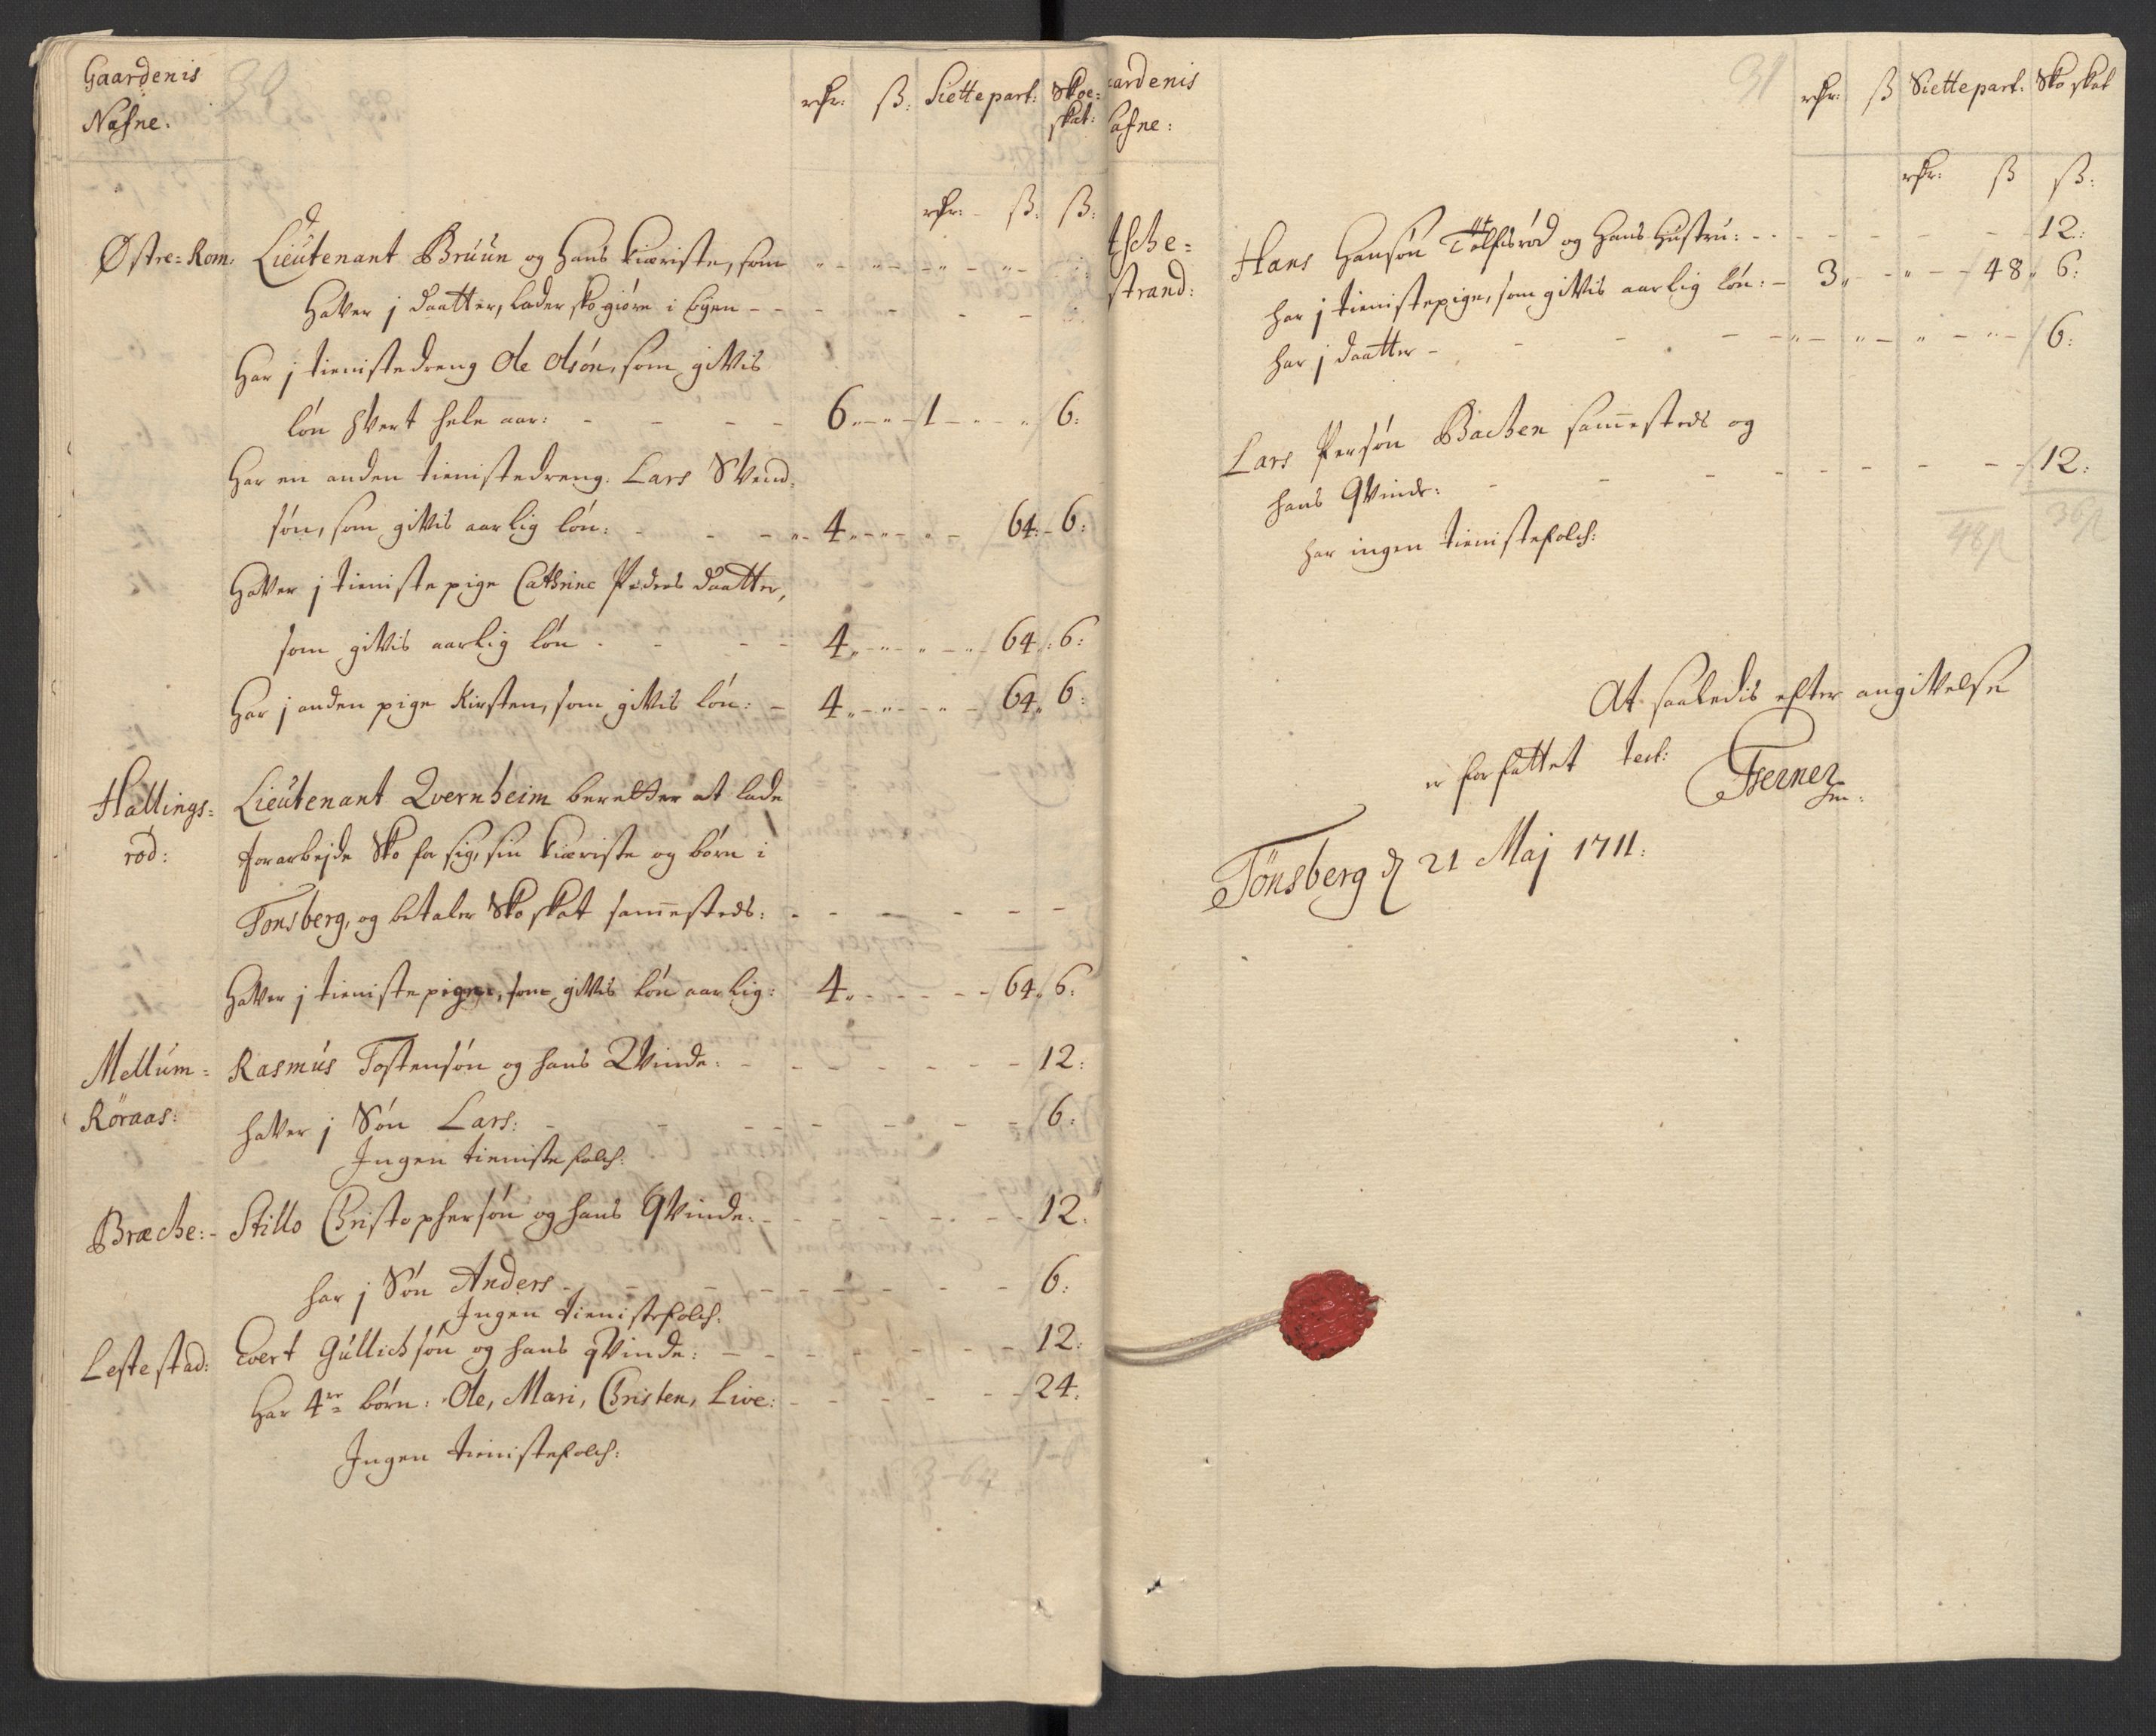 Gaardenis
Nafne.
30
rdr: ß: Siettepart: Skoe-
skat:
rdr: ß: ß:
Østre-Rom: Lieutenant Bruun og Hans kiæriste, som
Haver j daatter, lader sko giøre i byen
Har j tienistedreng Ole Olsön, som givis
lön hvert hele aar: 6 1 6:
Har en anden tienistedreng. Lars Svend-
sön, som givis aarlig lön: 4 64: 6:
Haver j tieniste pige Cathrine Peders daatter,
som givis aarlig lön 4 64 6:
Har j anden pige Kirsten, som givis lön: 4 64 6:
Hallings- Lieutenant Qvernheim beretter at lade
röd: forarbejde Sko for sig, sin kiæriste og börn i
Tonsberg, og betaler Sko skat sammesteds:
Haver j tieniste pige, som givis lön aarlig: 4 64 6:
Mellum- Rasmus Tostensön og hans Qvinde: 12:
Röraas: haver j Sön Lars: 6:
Ingen tieniste folch:
Bræche: Stillo Christophersön og hans Qvinde: 12:
har j Sön Anders 6:
Ingen tienistefolch:
Lestestad: Evert Gullichsön og hans qvinde: 12:
Har 4re börn: Ole, Mari, Christen, Live: 24:
Ingen tienistefolch:
ardenis
afne:
31
rdr: ß Siettepart. Sko skat
rdr: ß ß:
tsche- Hans Hansön og Hans Hustru: 12:
strand: har j tienistepige, som givis aarlig lön: 3 48 6:
har j daatter 6:
Lars Persön Bachen sammesteds og
hans Qvinde: 12:
48ß 36ß
har ingen tienistefolch:
At saaledis efter angivelse
er forfattet test:
Tönsberg d 21 Maj 1711: